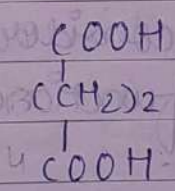 COOH
(CH2)2
COOH